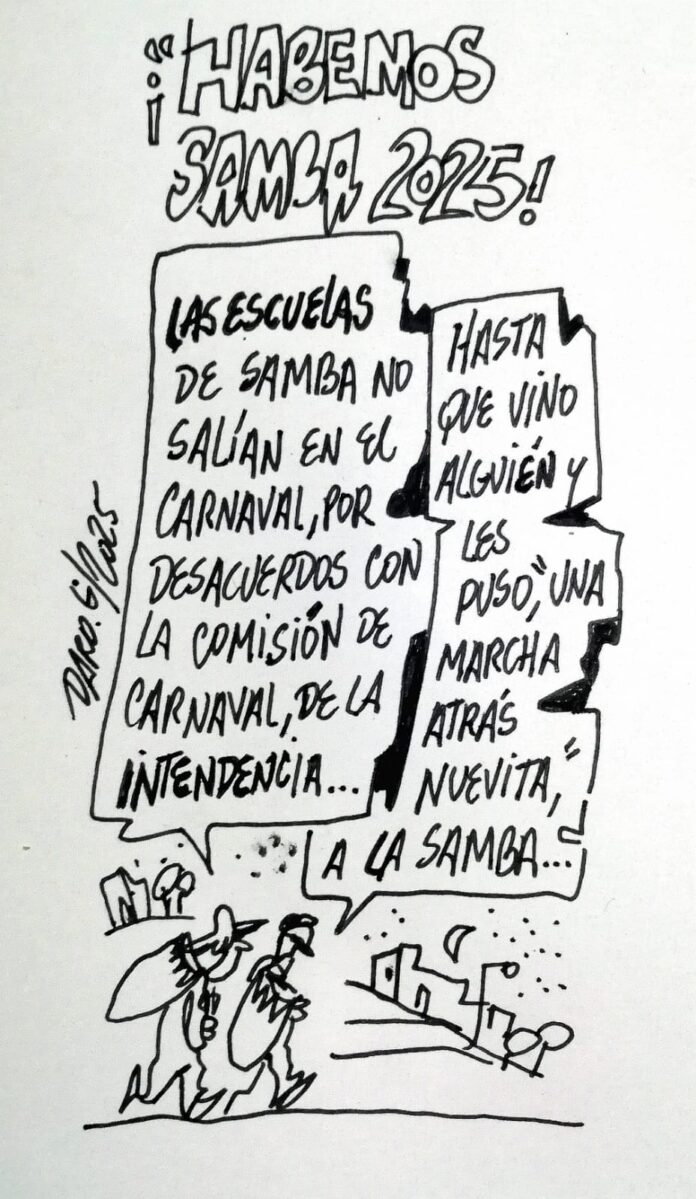 ¡HABEMOS
SAMBA 2025!
LAS ESCUELAS
DE SAMBA NO
SALÍAN EN EL
CARNAVAL, POR
DESACUERDOS CON
LA COMISIÓN DE
CARNAVAL, DE LA
INTENDENCIA...
HASTA
QUE VINO
ALGUIÉN Y
LES
PUSO, "UNA
MARCHA
ATRÁS
NUEVITA,"
A LA SAMBA...